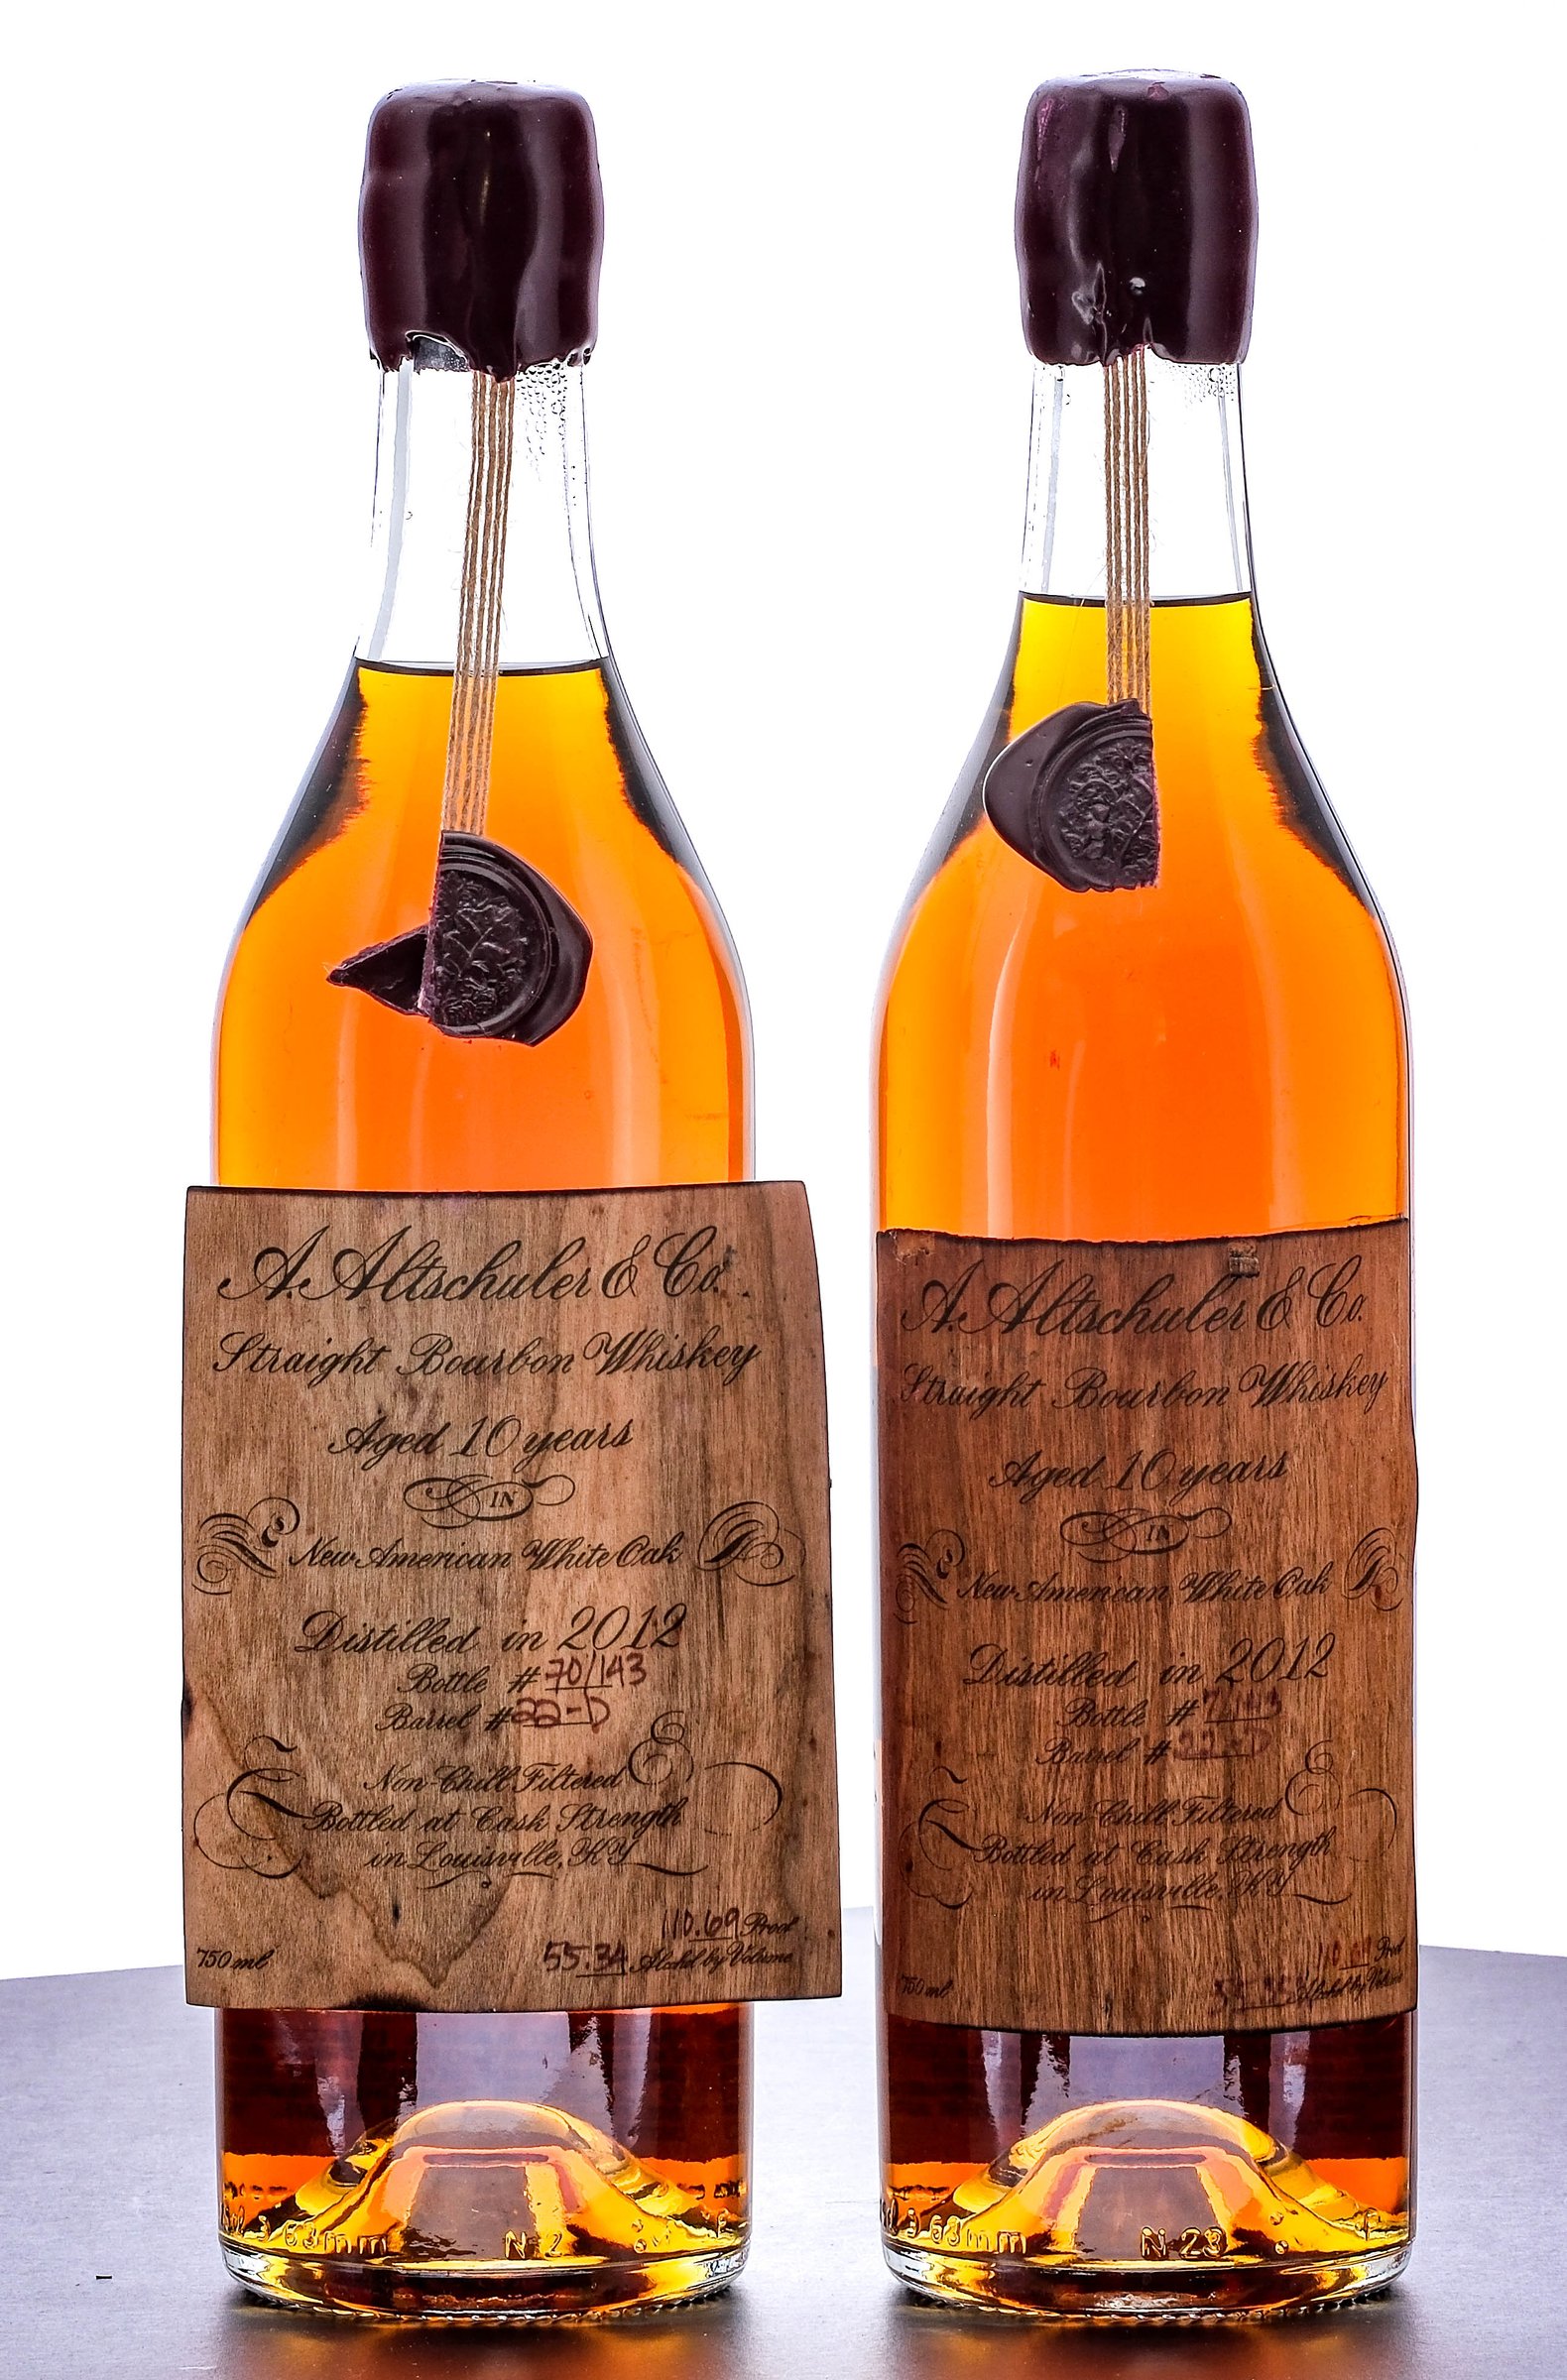 A. Altschuler & Co.
Straight Bourbon Whiskey
Aged 10 years
IN
New American White Oak
Distilled in 2012
Bottle # 70/143
Barrel # 22-D
Non-Chill Filtered
Bottled at Cask Strength
in Louisville, KY
110.69 Proof
750 ml 55.34 Alcohol by Volume
63mm N2
A. Altschuler & Co.
Straight Bourbon Whiskey
Aged 10 years
IN
New American White Oak
Distilled in 2012
Bottle #
Barrel # 22-D
Non-Chill Filtered
Bottled at Cask Strength
in Louisville, KY
Proof
750 ml Alcohol by Volume
63mm N 23